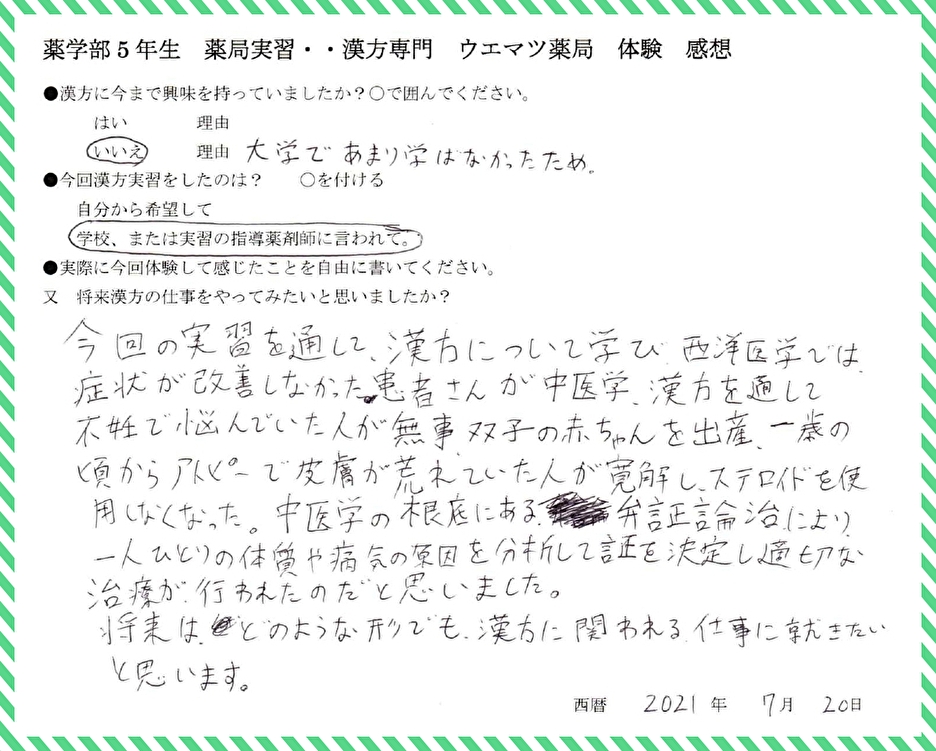 薬学部5年生　薬局実習・・漢方専門　ウエマツ薬局　体験　感想
●漢方に今まで興味を持っていましたか？○で囲んでください。
はい　理由
いいえ　理由　大学であまり学ばなかったため。
●今回漢方実習をしたのは？　○を付ける
自分から希望して
学校、または実習の指導薬剤師に言われて。
●実際に今回体験して感じたことを自由に書いてください。
又　将来漢方の仕事をやってみたいと思いましたか？
今回の実習を通して、漢方について学び、西洋医学では、
症状が改善しなかった患者さんが中医学、漢方を通して
不妊で悩んでいた人が無事、双子の赤ちゃんを出産、一歳の
頃からアトピーで皮膚が荒れていた人が寛解し、ステロイドを使
用しなくなった。中医学の根底にある弁証論治により、
一人ひとりの体質や病気の原因を分析して証を決定し適切な
治療が行われたのだと思いました。
将来は、どのような形でも、漢方に関われる仕事に就きたい
と思います。
西暦　2021年　7月　20日